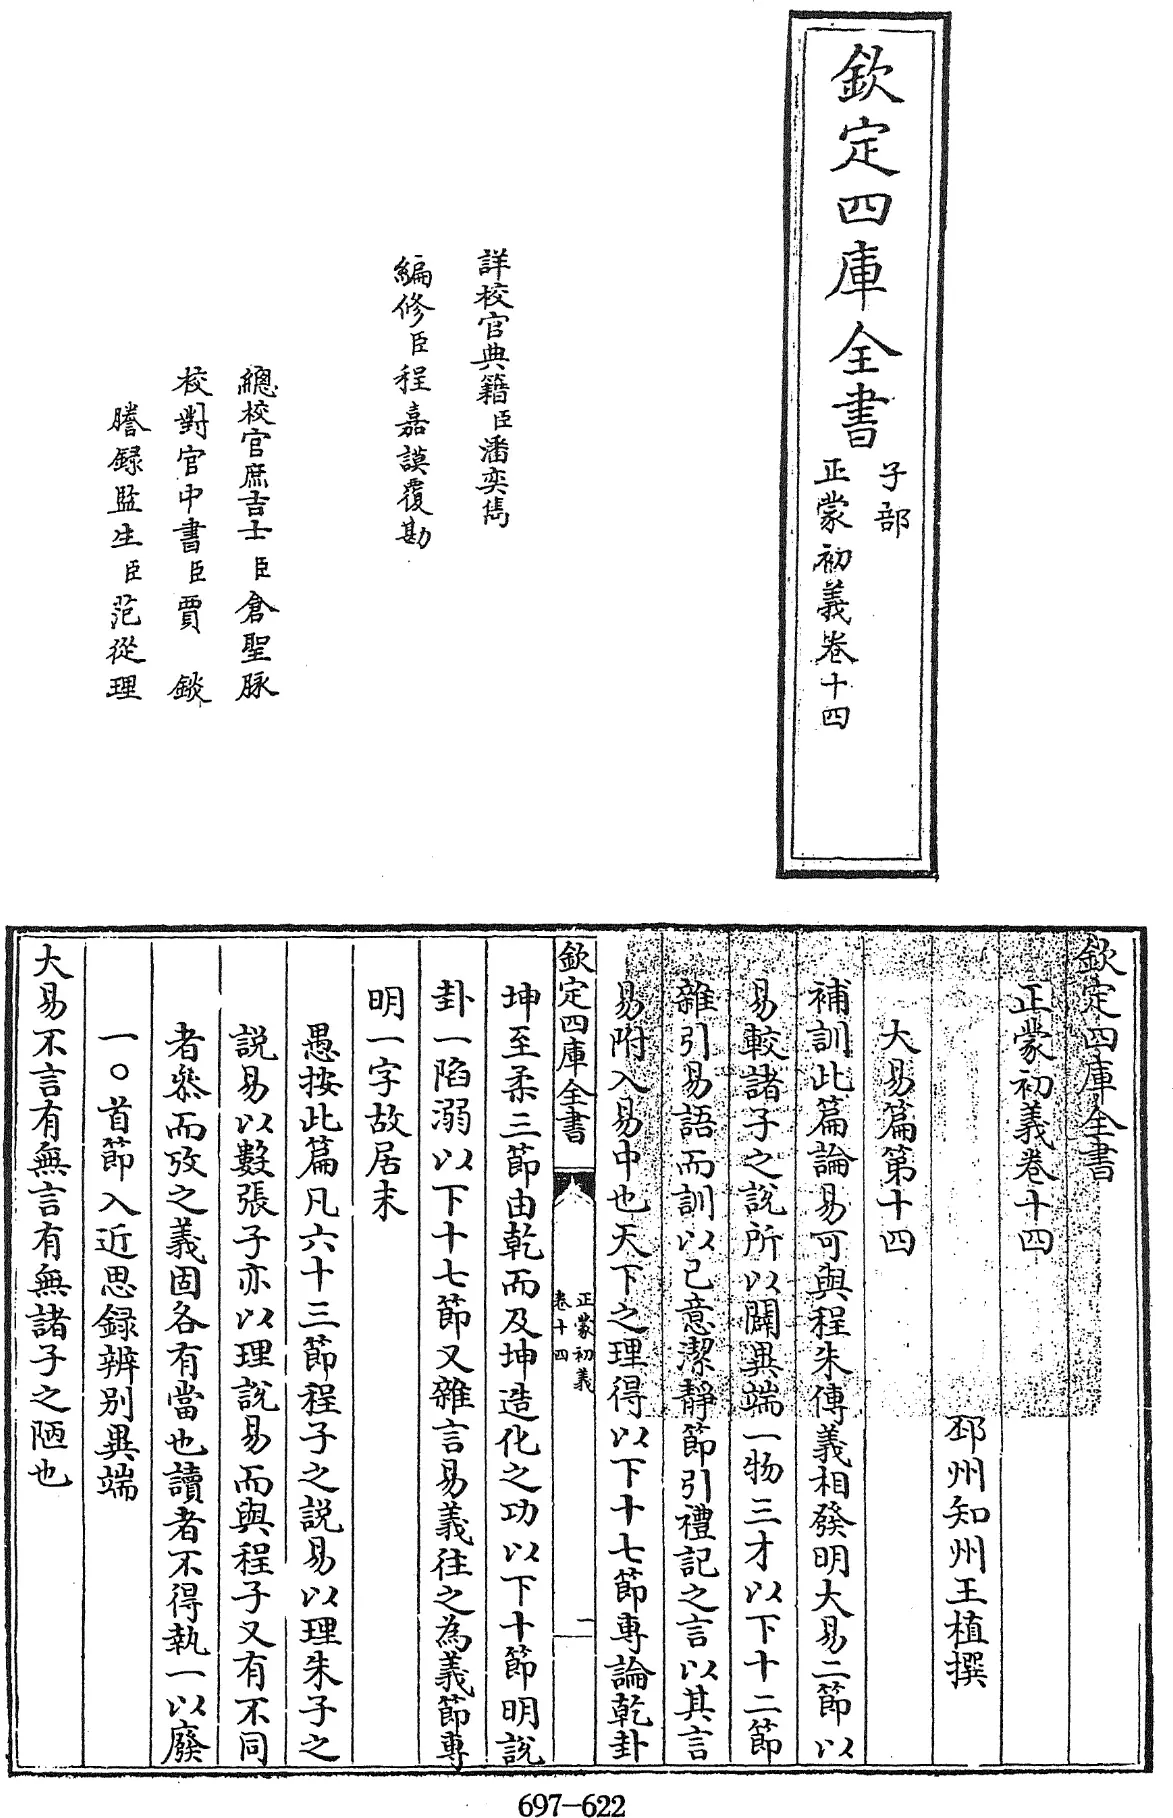 欽定四庫全書
子部
正蒙初義卷十四
詳校官典籍臣潘奕雋
編修臣程嘉謨覆勘
總校官庶吉士臣倉聖脈
校對官中書臣賈錟
謄録監生臣范從理
欽定四庫全書
正蒙初義卷十四
邳州知州王植撰
大易篇第十四
補訓此篇論易可與程朱傳義相發明大易二節以
易較諸子之説所以闢異端一物三才以下十二節
雜引易語而訓以己意潔靜節引禮記之言以其言
易附入易中也天下之理得以下十七節専論乾卦
欽定四庫全書
正蒙初義
卷十四
二
坤至柔三節由乾而及坤造化之功以下十節明説
卦一陷溺以下十七節又雜言易義往之為義節専
明一字故居末
愚按此篇凡六十三節程子之説易以理朱子之
説易以數張子亦以理説易而與程子又有不同
者叅而攷之義固各有當也讀者不得執一以廢
一○首節入近思録辨别異端
大易不言有無言有無諸子之陋也
697-622